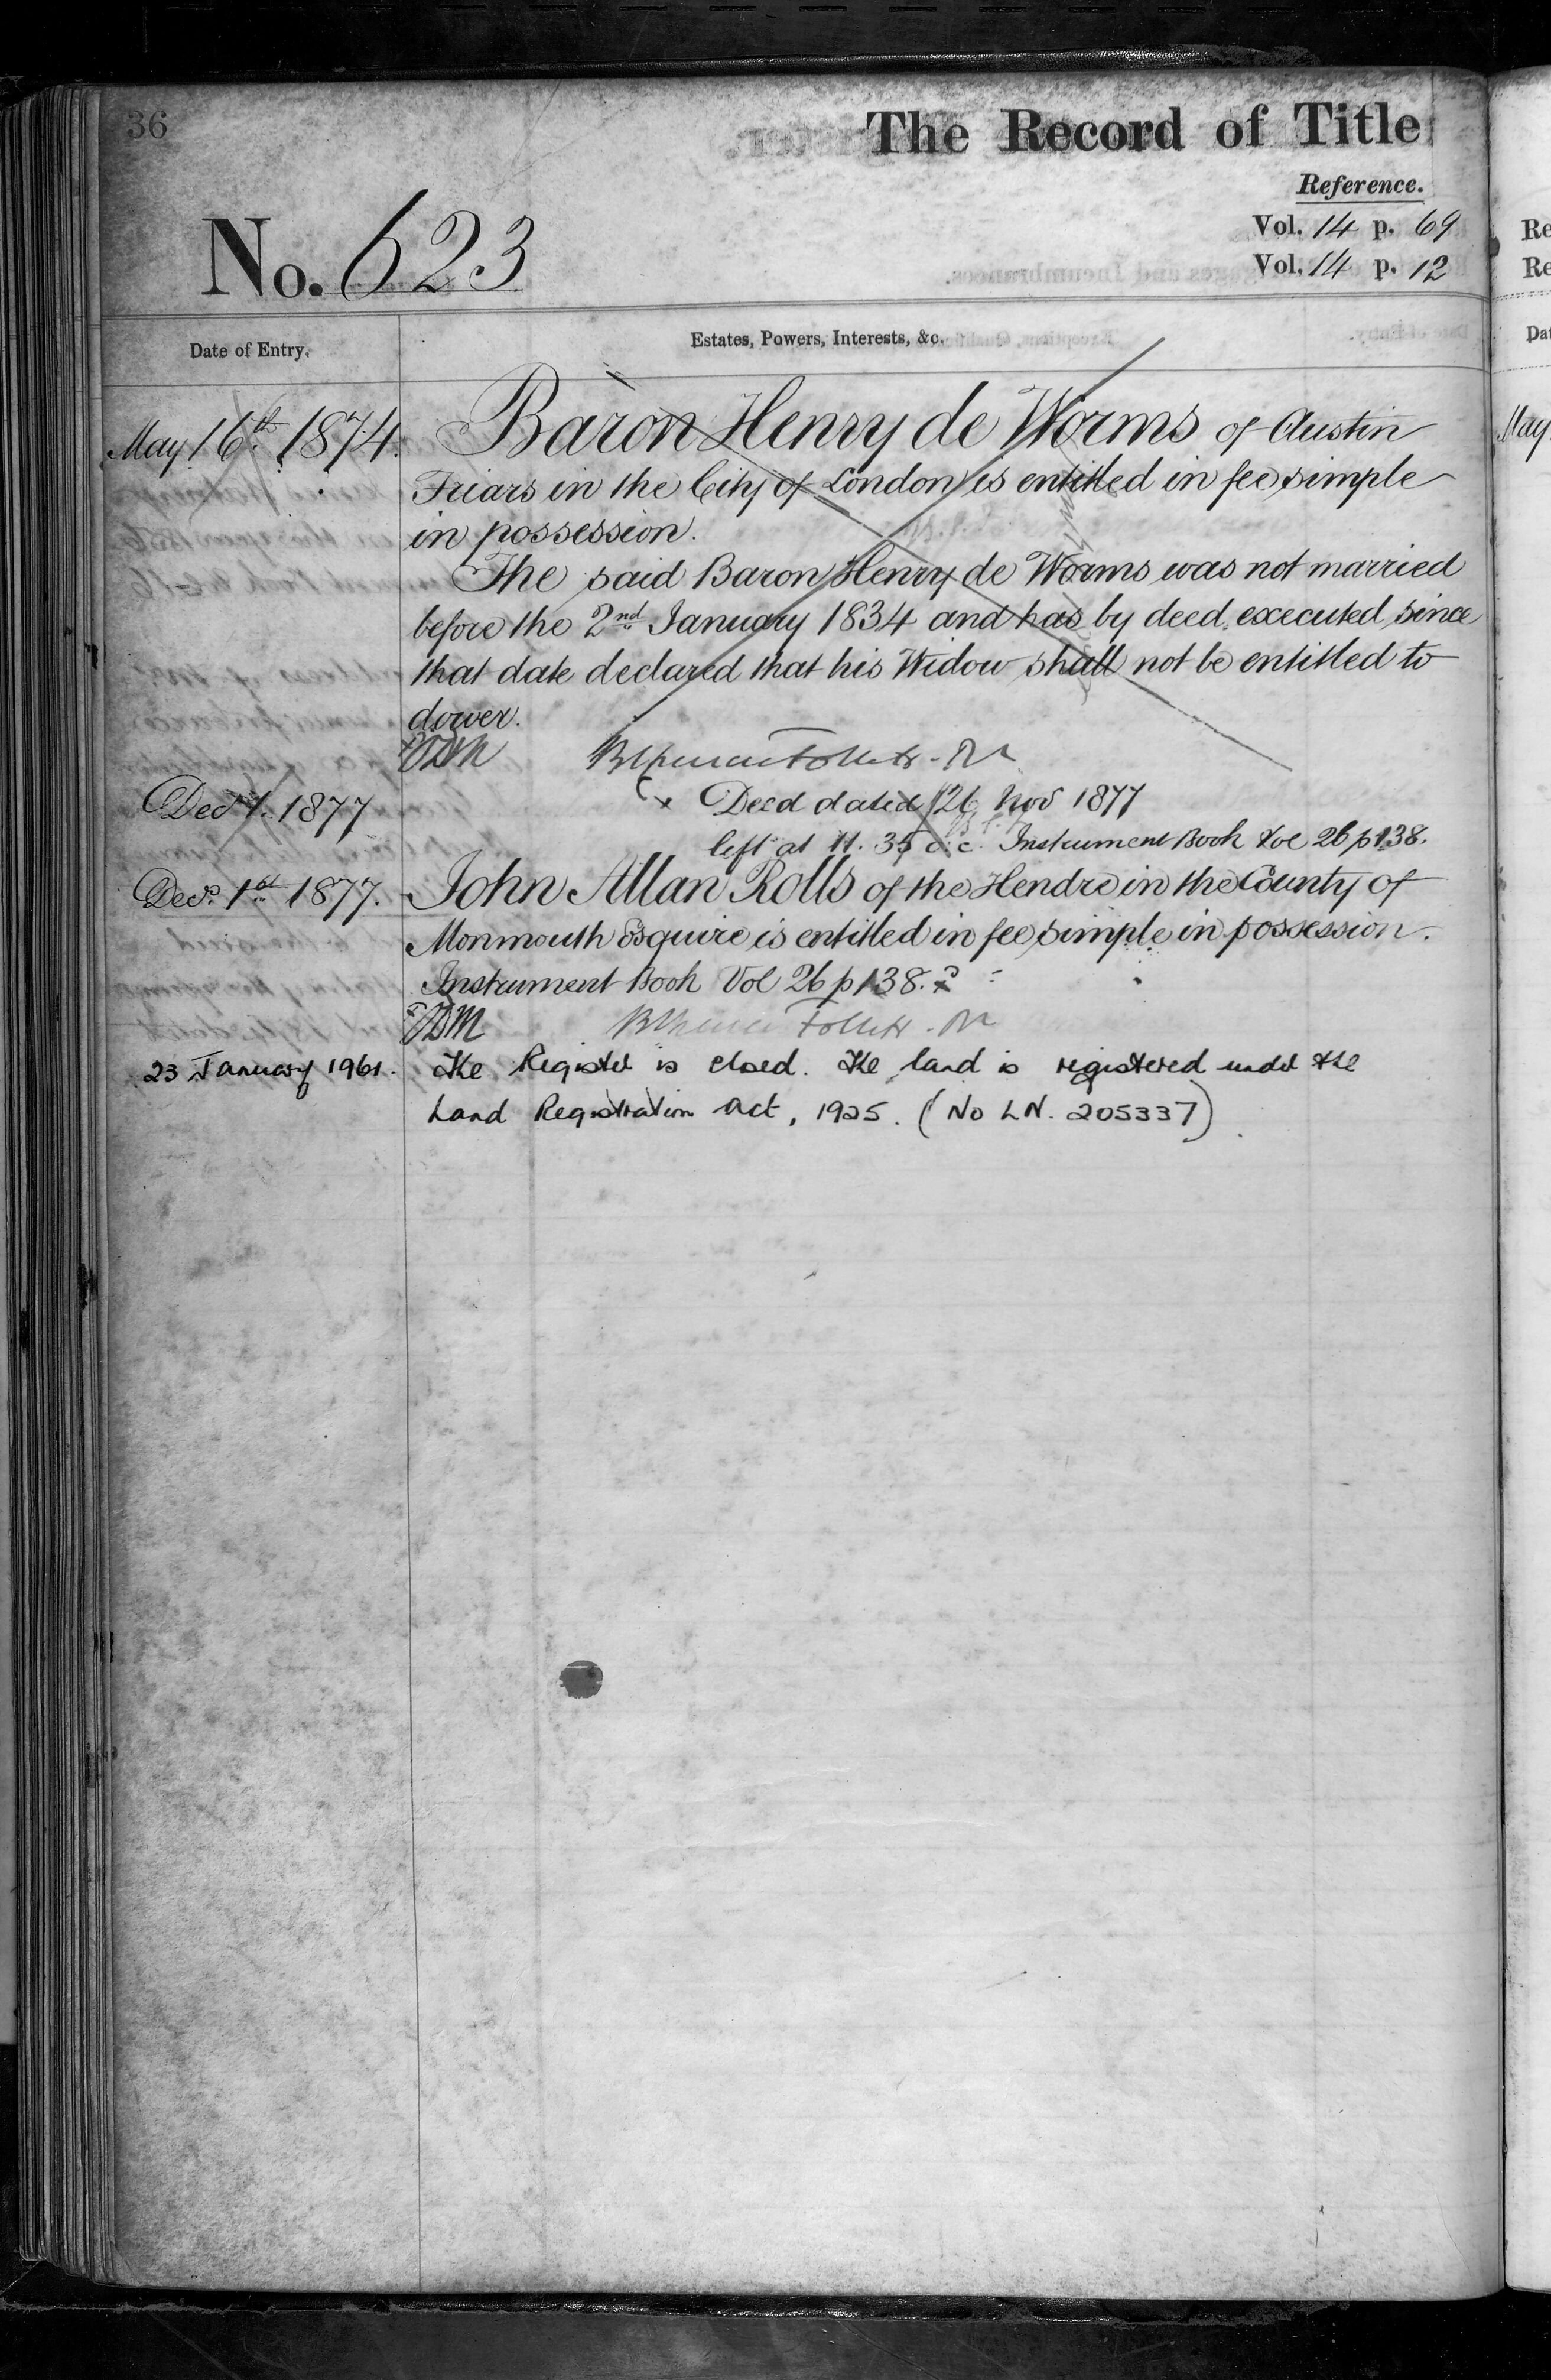 36
The Record of Title
Reference.
No. 623
Vol. 14 p. 69
Vol. 14 p. 12
Date of Entry.
Estates, Powers, Interests, &c.
May 16th 1874.
Baron Henry de Worms of Austin
Friars in the City of London is entitled in fee simple
in possession.
The said Baron Henry de Worms was not married
before the 2nd January 1834 and has by deed executed since
that date declared that his Widow shall not be entitled to
dower.
Dec 1. 1877
Deed dated 26 Nov 1877
left at 11.35 o.c. Instrument Book Vol 26 p 138.
Decr. 1st 1877.
John Allan Rolls of the Hendre in the County of
Monmouth Esquire is entitled in fee simple in possession.
Instrument Book Vol 26 p 138.
23 January 1961.
The Register is closed. The land is registered under the
Land Registration Act, 1925. (No LN. 205337)
Re
Re
Da
May